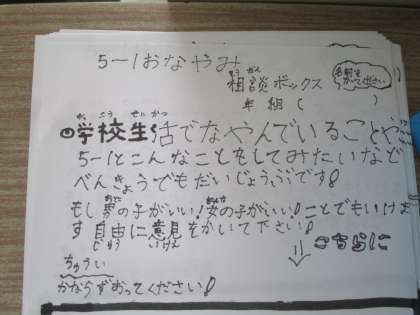 5-1おなやみ
相談ボックス
そう だん
名前を
かいて下さい
年 組( )
がっ こう せい かつ
学校生活でなやんでいることや
5-1とこんなことをしてみたいなど
べんきょうでもだいじょうぶです!
もし男の子がいい!女の子がいい!ことでもいけま
す自由に意見をかいて下さい!
じゆう いけん
こちらに
ちゅうい
かならずおってください!